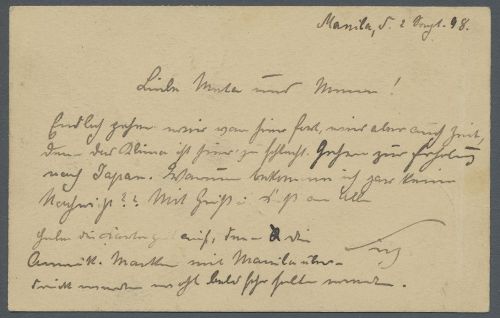 Manila, d. 2 Sept. 98.
Liebe Mutter und Mama!
Endlich gehen wir von hier fort, wird aber auch Zeit,
denn das Klima ist hier zu schlecht. Gehen zur Erholung
nach Japan. Warum bekomme ich gar keine
Nachricht?? Mit Gruß an Alle
die Karte auf, denn die
Amerik. Marken mit Manila über-
druckt werden wohl bald sehr selten werden.